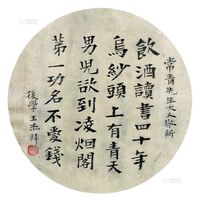 飲酒讀書四十年
烏紗頭上有青天
男兒欲到凌烟閣
第一功名不愛錢
常青先生大人
後學王杰拜